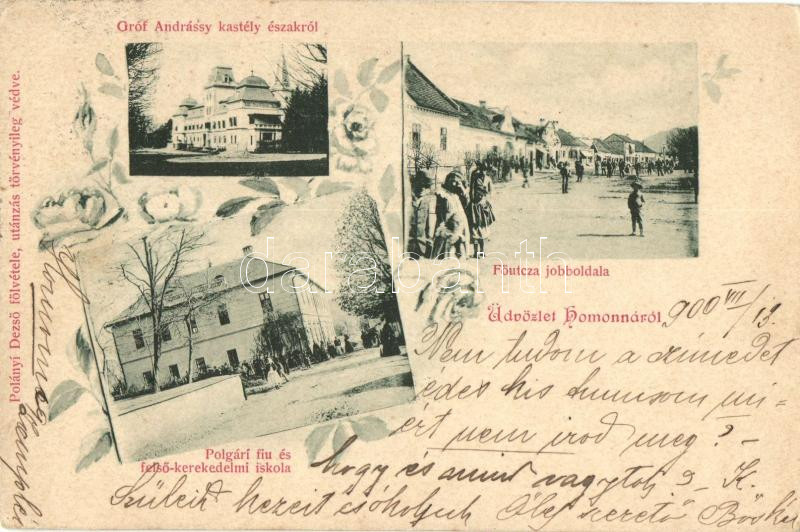 Gróf Andrássy kastély északról
Polányi Dezső fölvétele, utánzás törvényileg védve.
Főutcza jobboldala
Üdvözlet Homonnáról
900 VII/19.
Polgári fiu és
felső-kerekedelmi iskola
darabanth
Nem tudom a címedet
édes kis
ért nem írod meg? -
hogy és mind vagytok? K.
Szüleid kezeit csókoljuk Ölel szerető Böske